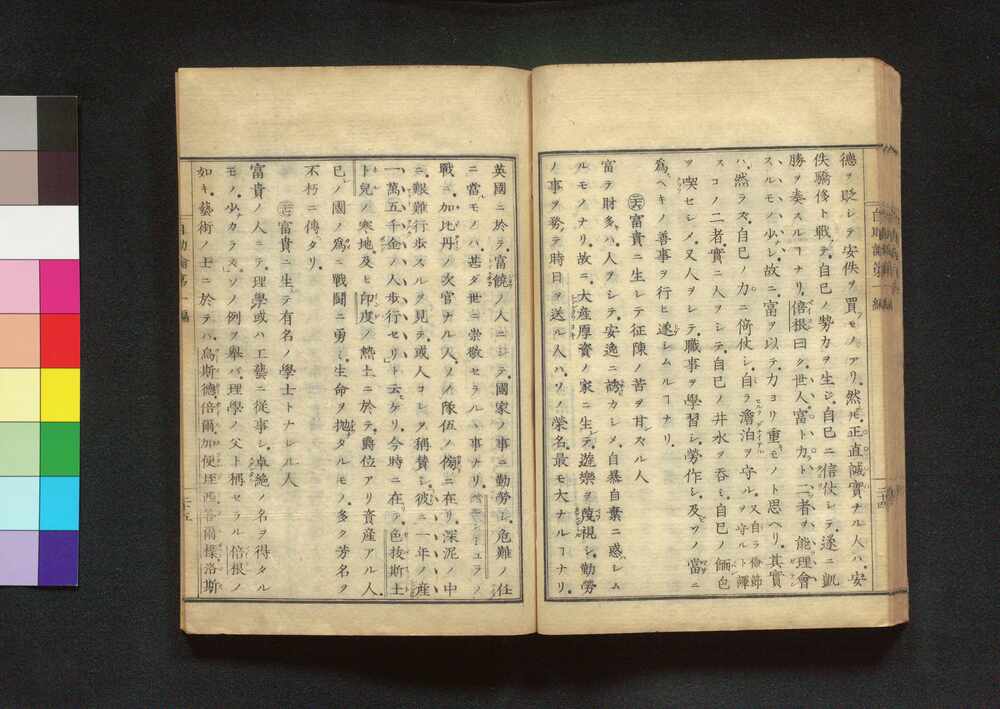 德ヲ貶シテ安佚ヲ買フモノアリ然𪜈正直誠實ナル人ハ安
佚驕侈ト戰テ自己ノ勢力ヲ生シ自己ニ信仗シテ遂ニ凱
勝ヲ奏スルヿナリ倍根曰ク世人富ト力ト二者ヲ能理會
スルモノ少シ故ニ富ヲ以テ力ヨリ重キモノト思ヘリ其實
ハ然ラス自己ノ力ニ倚仗シ自ラ澹泊ヲ守ル又自ラ儉節ヲ守ルト譯
スコノ二者實ニ人ヲシテ自己ノ井水ヲ呑ミ自己ノ麵包
ヲ喫セシメ又人ヲシテ職事ヲ學習シ勞作シ及ヒソノ當ニ
爲ヘキノ善事ヲ行ヒ遂シムルヿナリ
富貴ニ生レテ征陳ノ苦ヲ甘スル人
富テ財多ケハ人ヲシテ安逸ニ誘カレシメ自暴自棄ニ惑レシム
ルモノナリ故ニ大産厚資ノ家ニ生テ遊樂ヲ蔑視シ勤勞
ノ事ヲ務テ時日ヲ送ル人ハソノ榮名最モ大ナルヿナリ
自助論第一編
英國ニ於テ富饒ノ人ニシテ國家ノ事ニ勤勞シ危難ノ任
ニ當モノハ甚ダ世ニ崇敬セラルヽ事ナリ
戰ニ加比丹ノ次官ナル人ソノ隊伍ノ傍ニ在リ深泥ノ中
ニ艱難行歩スルヲ見テ或人コレヲ稱賛シ彼ニ一年ノ産
一萬五千金ノ人歩行セリト云ケリ今時ニ在テ色抜斯土
卜兒ノ寒地及ヒ印度ノ熱土ニ於テ爵位アリ資産アル人
己ノ國ノ爲ニ戰鬪ニ勇ミ生命ヲ抛タルモノ多ク芳名ヲ
不朽ニ傳タリ
富貴ニ生テ有名ノ學士トナレル人
富貴ノ人ニテ理學或ハ工藝ニ從事シ卓絶ノ名ヲ得タル
モノ少カラスソノ例ヲ擧レハ理學ノ父ト稱セラル倍根ノ
如キ藝術ノ上ニ於テハ烏斯德倍爾加便垤西答爾檪洛斯
自助論第一編